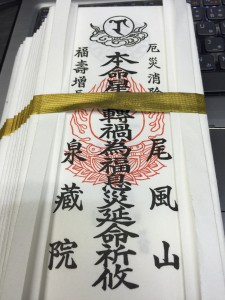 厄災消除
尾風山
本命星轉禍為福息災延命祈攸
福壽增長
泉藏院